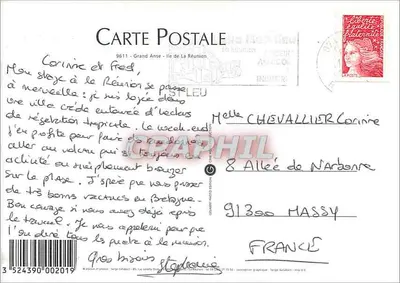 CARTE POSTALE
9611 - Grand Anse - Ile de La Réunion
Corinne et Fred,
Mon stage à la Réunion se passe
à merveille : je suis logée dans
une villa créole entourée d'hectares
de végétation tropicale. Le week-end
j'en profite pour faire
aller au volcan
activité ou simplement bronzer
sur la plage. J'espère que vous passez
de très bonnes vacances en Bretagne.
Bon courage si vous avez déjà repris
le travail. Je vous appellerai pour
Gros bisous Stéphanie
ST LEU
Liberté
Egalité
Fraternité
LA POSTE
Melle CHEVALLIER Corinne
8 Allée de Narbonne
91300 MASSY
FRANCE
3 524390 002019